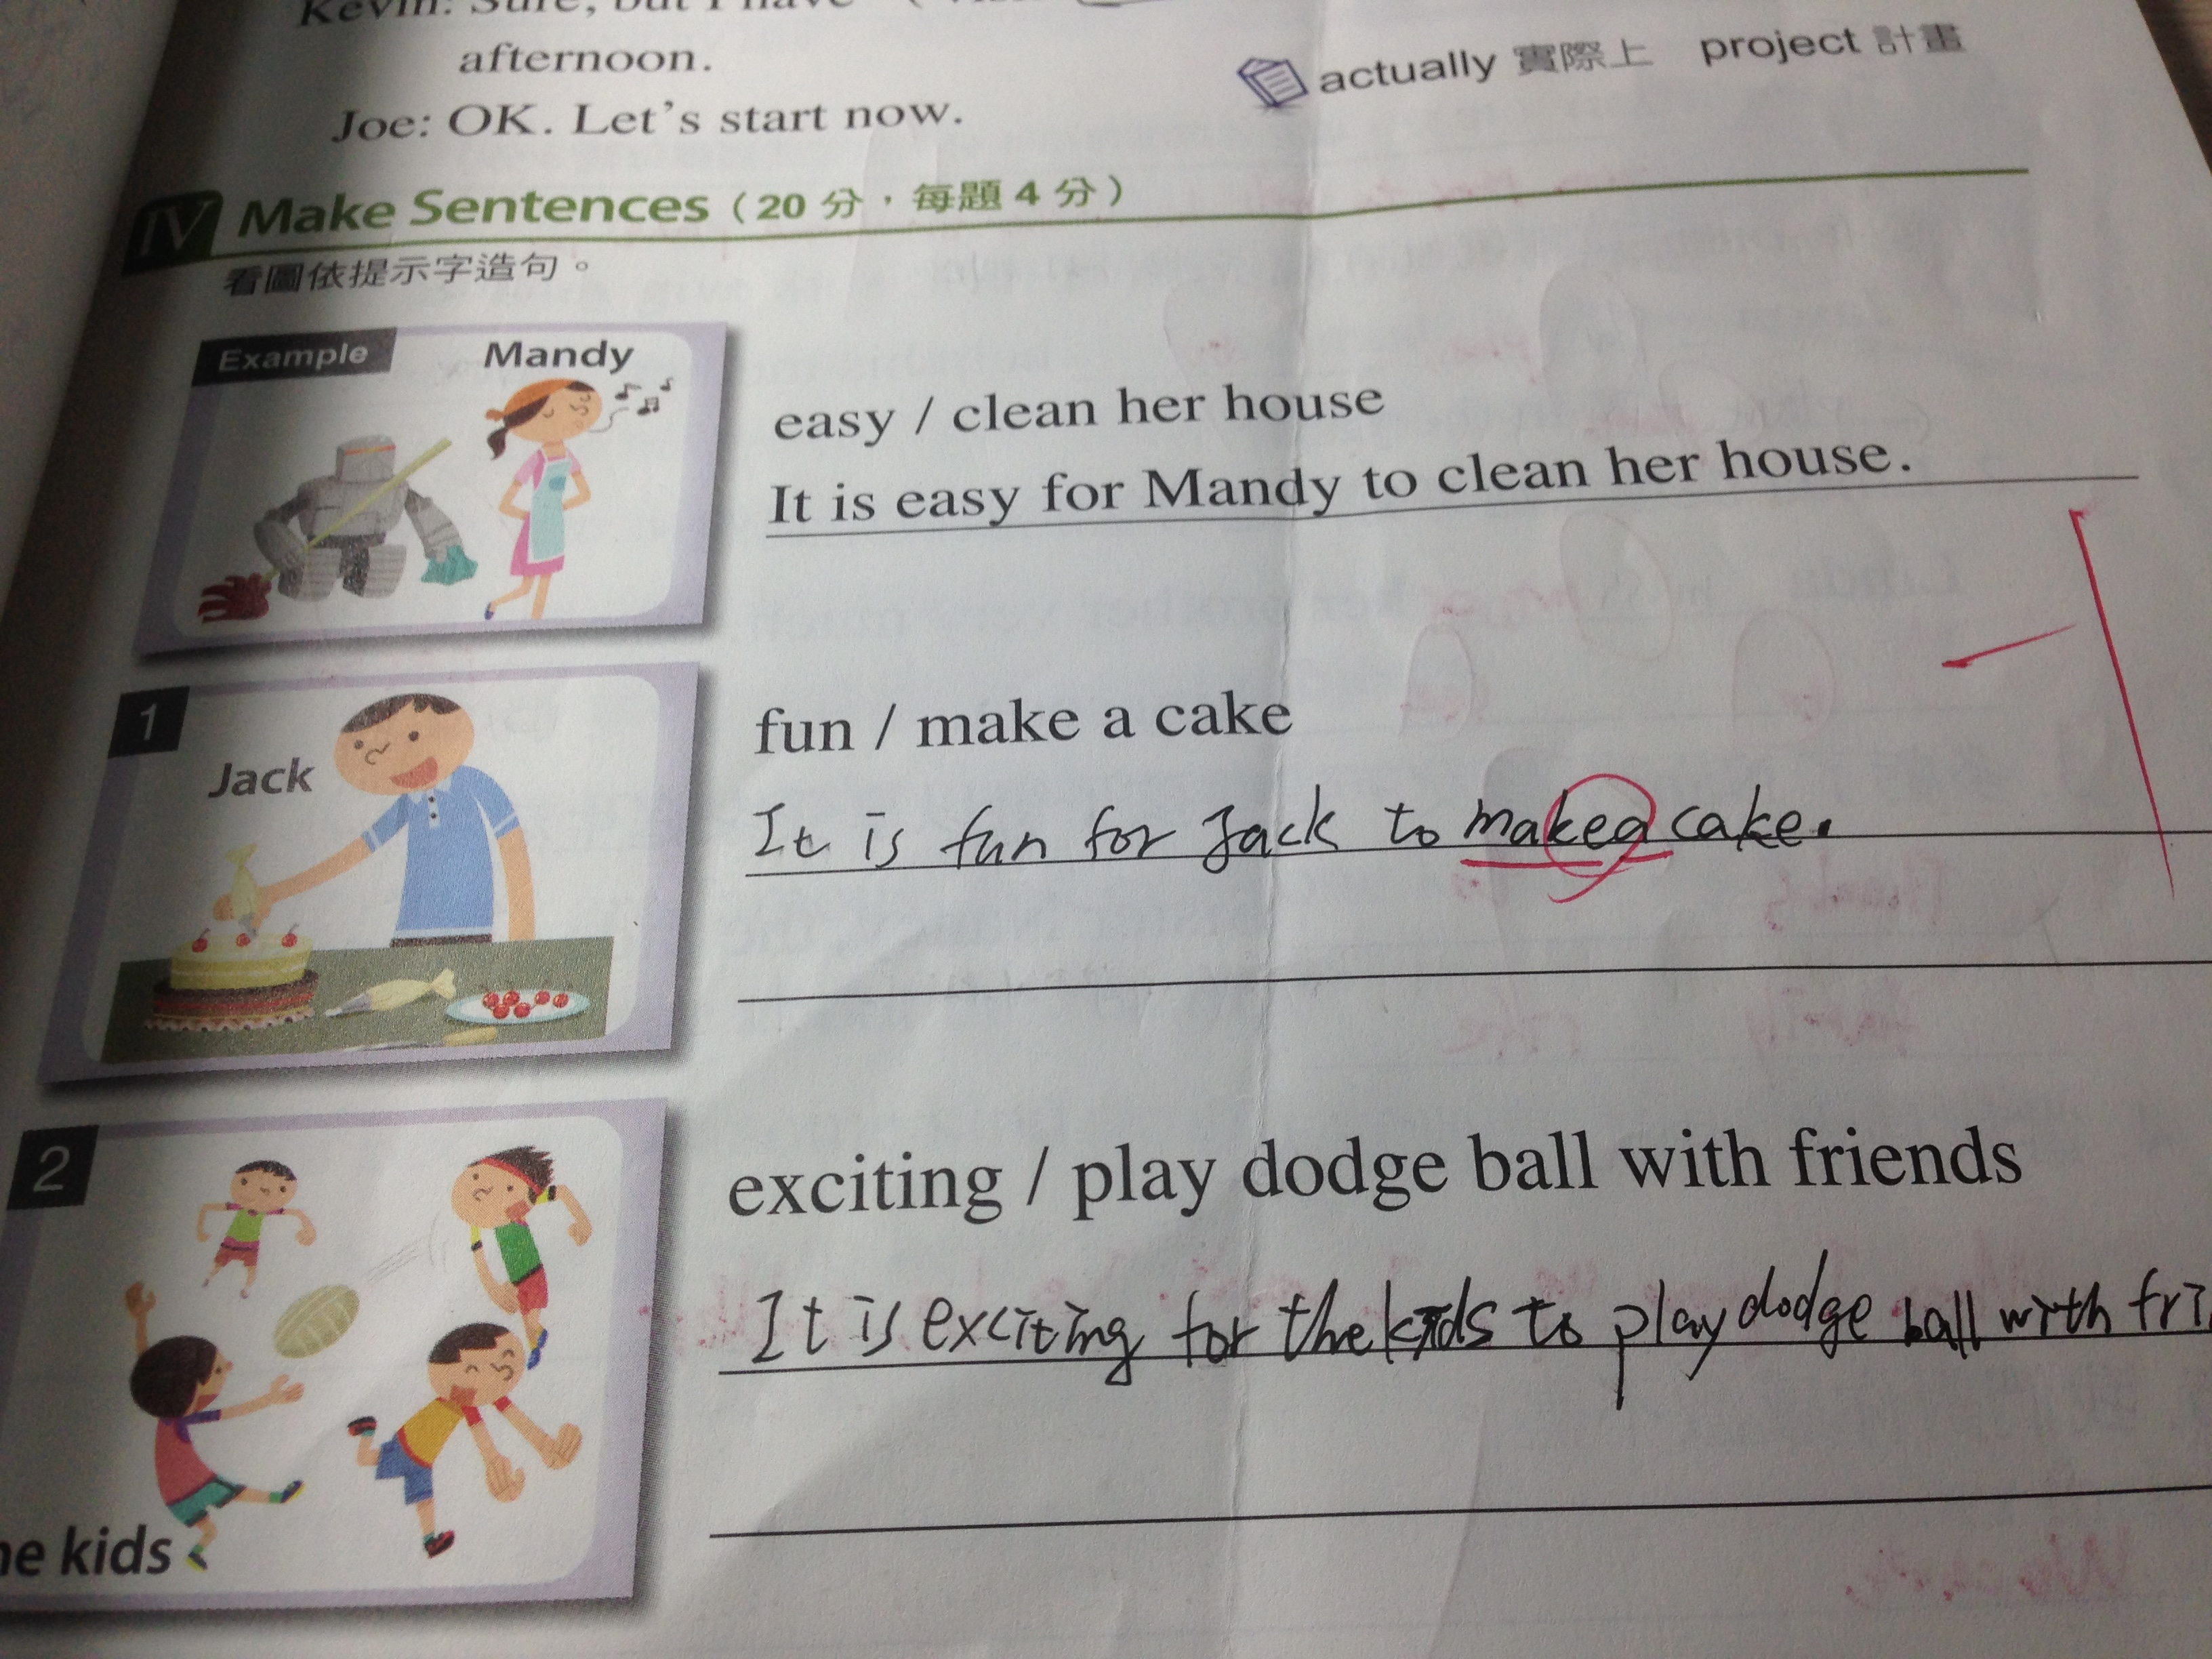 Kevin: Sure, but I have
afternoon.
Joe: OK. Let's start now.
actually 實際上 project 計畫
IV Make Sentences (20 分，每題 4 分)
看圖依提示字造句。
Example Mandy
easy / clean her house
It is easy for Mandy to clean her house.
-1
1
Jack
fun / make a cake
It is fun for Jack to makea cake.
2
exciting / play dodge ball with friends
It is exciting for the kids to play dodge ball with fri
he kids